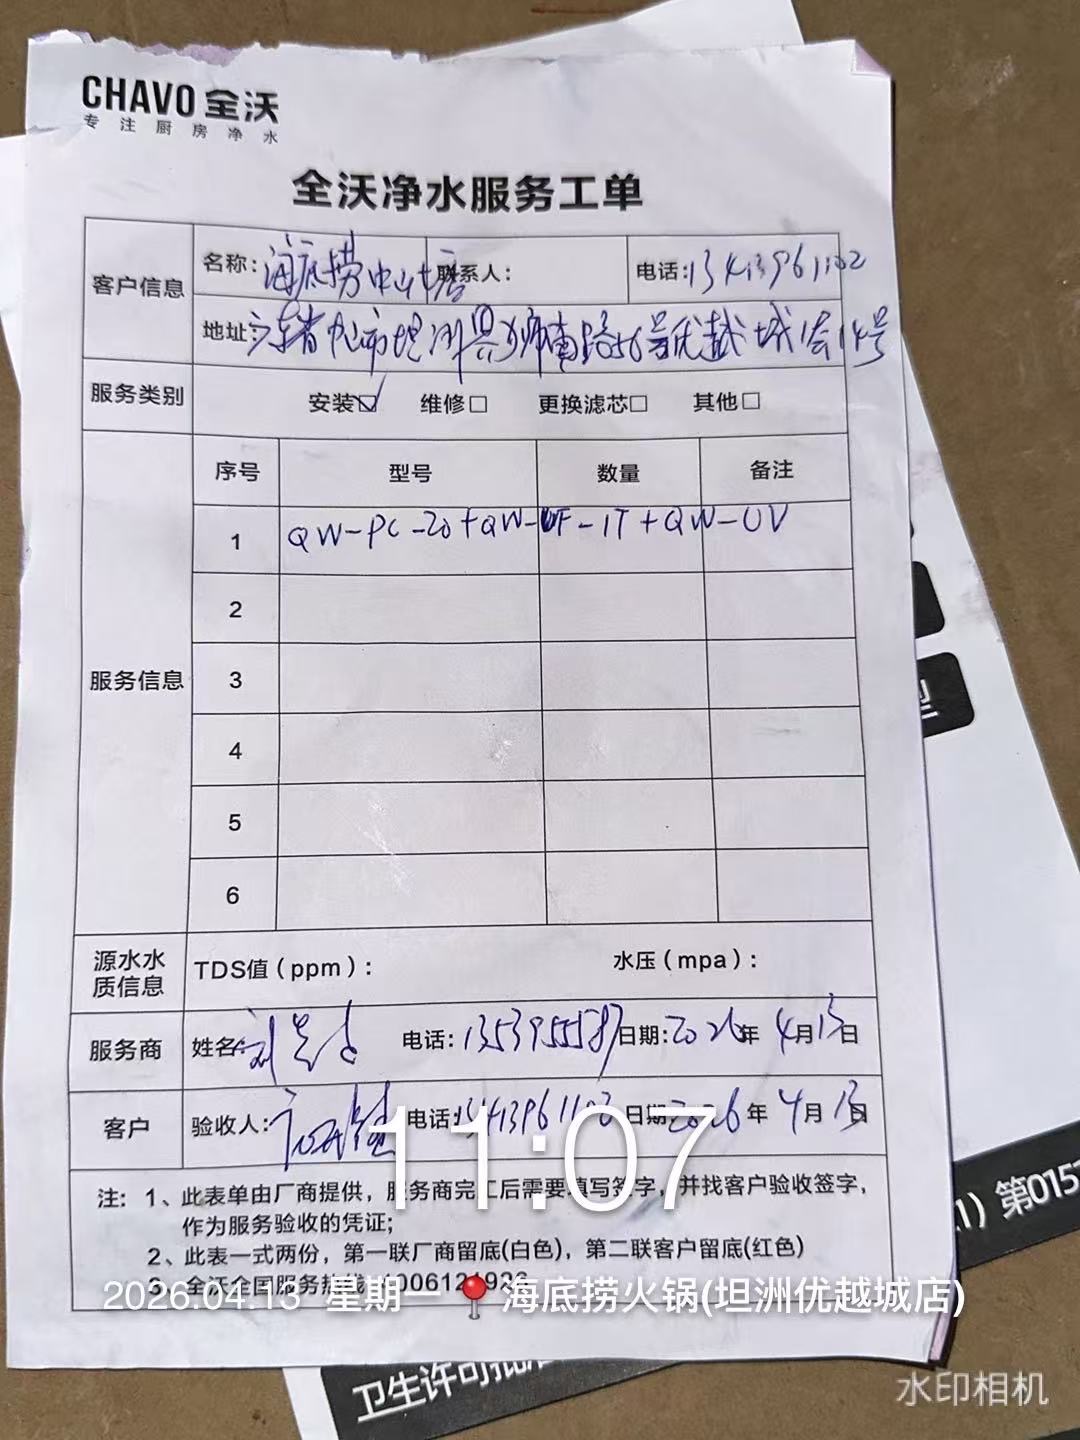 CHAVO 全沃
专注厨房净水
全沃净水服务工单
客户信息
名称：海底捞中山七店 联系人： 电话：13413961102
地址：广东省中山市坦洲
路56号优越城
号
服务类别 安装☑ 维修□ 更换滤芯□ 其他□
服务信息
序号 型号 数量 备注
1 QW-PC-20+QW-UF-1T+QW-UV
2
3
4
5
6
源水水质信息 TDS值（ppm）： 水压（mpa）：
服务商 姓名： 电话：13539555587 日期：2026年 4月13日
客户 验收人： 电话：13413961102 日期：2026年 4月13日
11:07
注：1、此表单由厂商提供，服务商完工后需要填写签字，并找客户验收签字，
作为服务验收的凭证；
2、此表一式两份，第一联厂商留底(白色)，第二联客户留底(红色)
3、全沃全国服务热线
2026.04.13 星期一 海底捞火锅(坦洲优越城店)
型
第015
卫生许可批准
水印相机